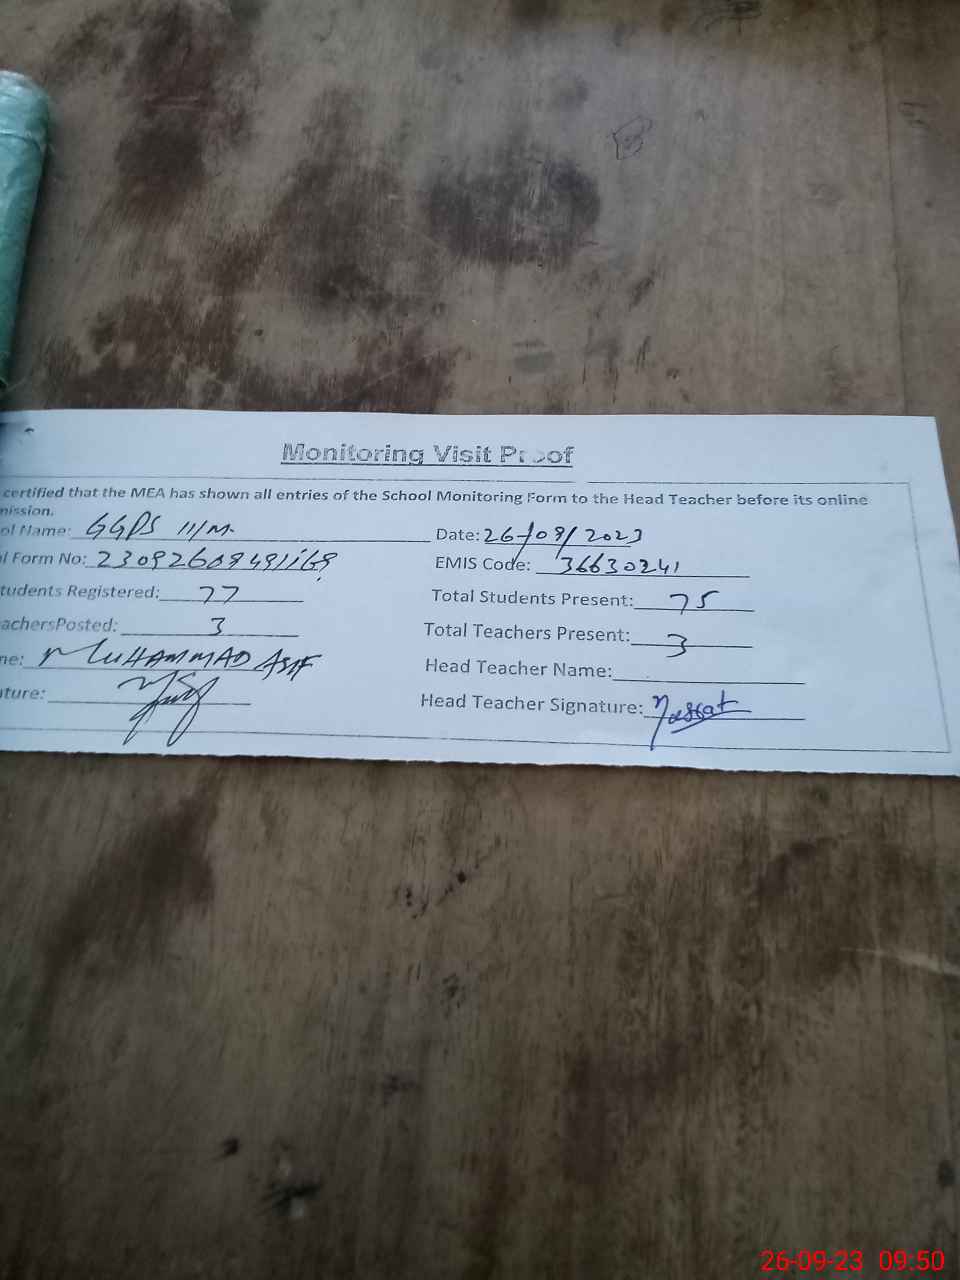 Monitoring Visit Proof
certified that the MEA has shown all entries of the School Monitoring Form to the Head Teacher before its online
mission.
ol Name: GGPS 111/M. Date: 26/09/2023
l Form No: EMIS Code: 36630241
tudents Registered: 77 Total Students Present: 75
achersPosted: 3 Total Teachers Present: 3
ne: MUHAMMAD ASIF Head Teacher Name:
ture: Head Teacher Signature:
26-09-23 09:50